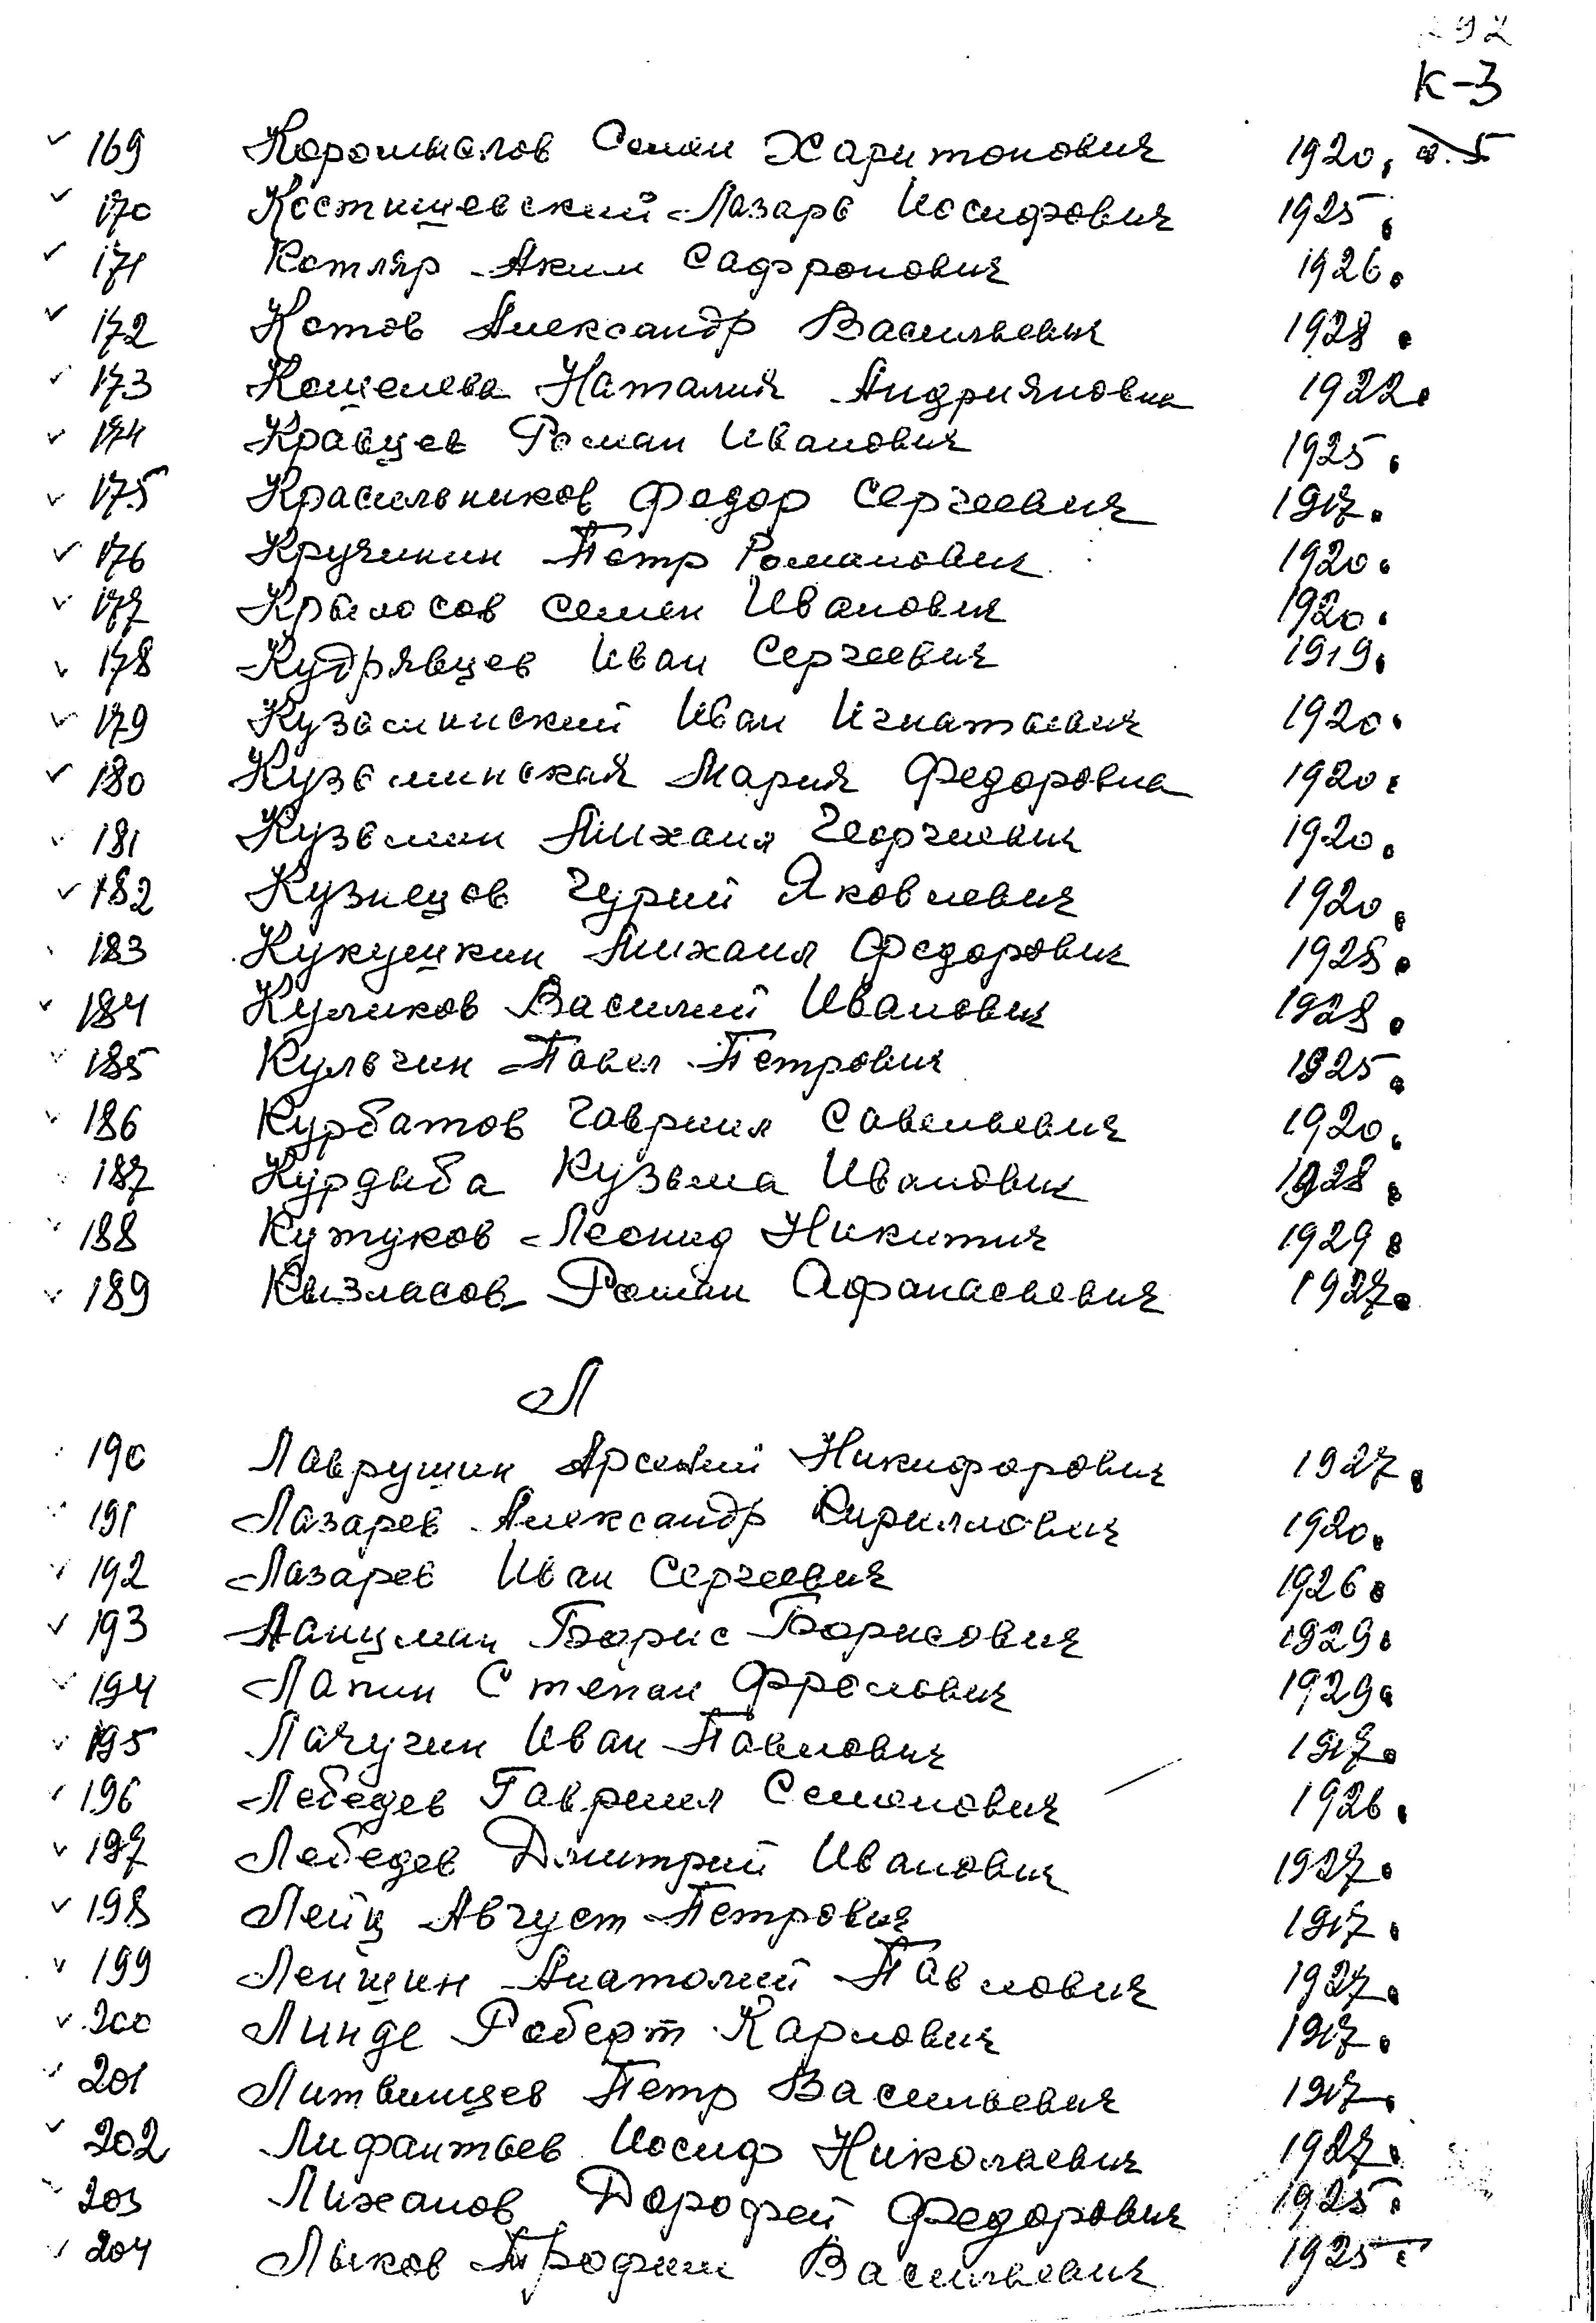 292
К-3
169 Коромыслов Семен Харитонович 1920.
170 Костишевский Лазарь Иосифович 1925.
171 Котляр Аким Сафронович 1926.
172 Котов Александр Васильевич 1928.
173 Кошелева Наталия Андрияновна 1922.
174 Кравцев Роман Иванович 1925.
175 Красильников Федор Сергеевич 1917.
176 Кручинин Петр Романович 1920.
177 Крылосов Семен Иванович 1920.
178 Кудрявцев Иван Сергеевич 1919.
179 Кузьминский Иван Игнатьевич 1920.
180 Кузьминская Мария Федоровна 1920.
181 Кузьмин Михаил Георгиевич 1920.
182 Кузнецов Гурий Яковлевич 1920.
183 Кукушкин Михаил Федорович 1928.
184 Куликов Василий Иванович 1928.
185 Кульгин Павел Петрович 1925.
186 Курбатов Гавриил Савельевич 1920.
187 Курдыба Кузьма Иванович 1928.
188 Кутуков Леонид Никитич 1929.
189 Кызласов Роман Афанасьевич 1927.
Л
190 Лаврушин Арсений Никифорович 1927.
191 Лазарев Александр Кириллович 1920.
192 Лазарев Иван Сергеевич 1926.
193 Ланцман Борис Борисович 1929.
194 Лапин Степан Фролович 1929.
195 Лачугин Иван Павлович 1917.
196 Лебедев Гавриил Семенович 1926.
197 Лебедев Дмитрий Иванович 1927.
198 Лейц Август Петрович 1917.
199 Леншин Анатолий Павлович 1927.
200 Линде Роберт Карлович 1917.
201 Литвинцев Петр Васильевич 1917.
202 Лифантьев Иосиф Николаевич 1927.
203 Лиханов Дорофей Федорович 1925.
204 Лыков Трофим Васильевич 1925.